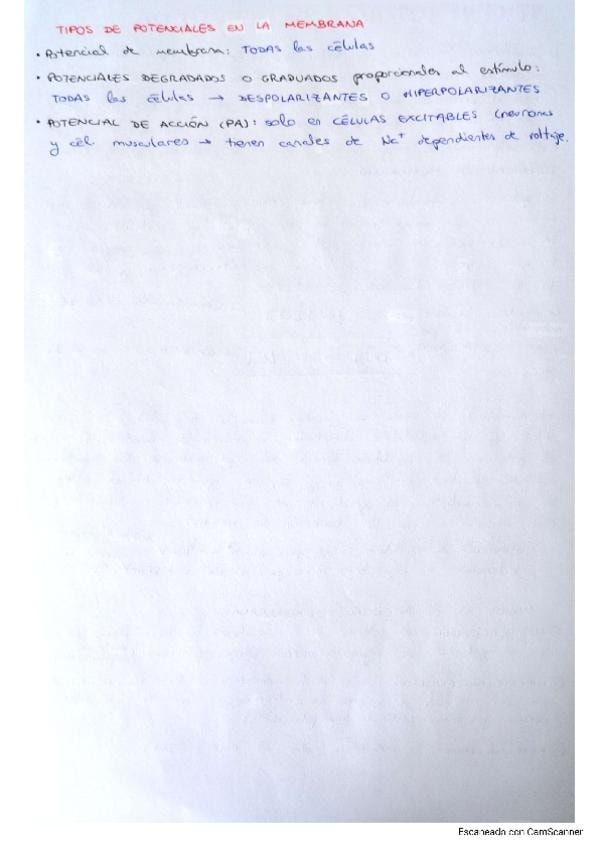 TIPOS DE POTENCIALES EN LA MEMBRANA
• Potencial de membrana: TODAS las células
• POTENCIALES DEGRADADOS O GRADUADOS proporcionales al estímulo:
TODAS las células → DESPOLARIZANTES O HIPERPOLARIZANTES
• POTENCIAL DE ACCIÓN (PA): solo en CÉLULAS EXCITABLES (neuronas
y cél musculares → tienen canales de Na+ dependientes de voltaje.
Escaneado con CamScanner